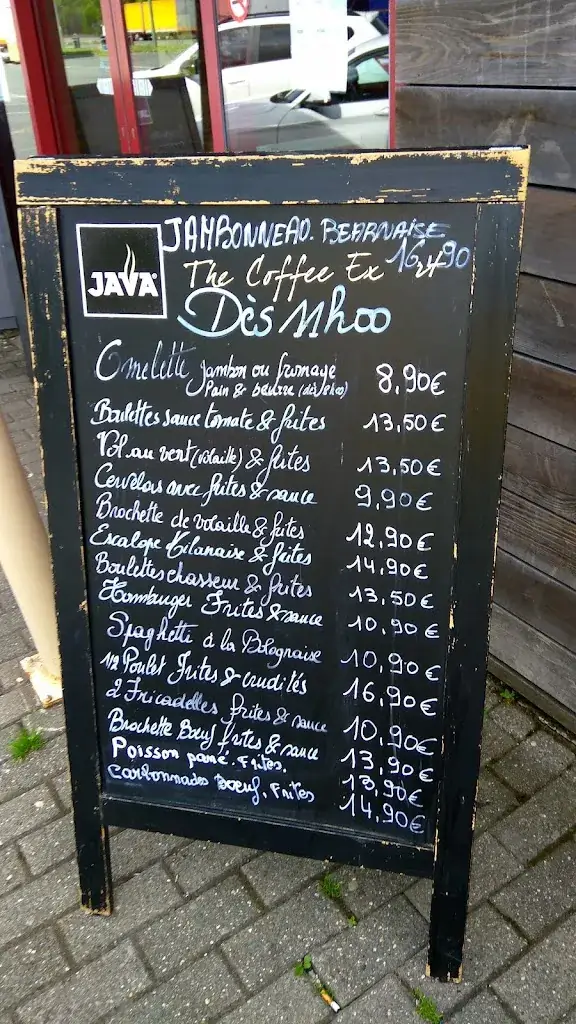 JAMBONNEAU. BEARNAISE
16,90
JAVA
The Coffee Ex
Dès 11h00
Omelette Jambon ou fromage
Pain & beurre (dès 8h00) 8,90€
Boulettes sauce tomate & frites 13,50€
Vol au vent (volaille) & frites 13,50€
Cervelas avec frites & sauce 9,90€
Brochette de volaille & frites 12,90€
Escalope Milanaise & frites 14,90€
Boulettes chasseur & frites 13,50€
Hamburger Frites & sauce 10,90€
Spaghetti à la Bolognaise 10,90€
1/2 Poulet Frites & crudités 16,90€
2 Fricadelles frites & sauce 10,90€
Brochette Bœuf frites & sauce 13,90€
Poisson pané. Frites. 13,90€
Carbonnades Bœuf. Frites 14,90€